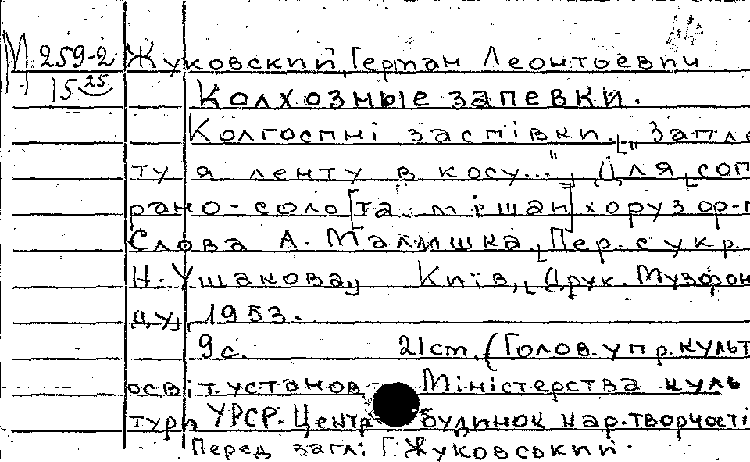 М 259-2 Жуковский, Герман Леонтоевич
15 25
Колхозные запевки.
Колгоспні заспівки. [„Запле
ту я ленту в косу...", Для соп
рано-соло [та мішан] хору з ор-
Слова А. Малишка, Пер. с укр.
Н. Ушакова] Київ, Друк. Музфон
ду, 1953.
9 с. 21 cm. (Голов. упр. культ
освіт. установ Міністерства куль
тури УРСР. Центр. будинок нар. творчості
Перед загл: Г. Жуковський.